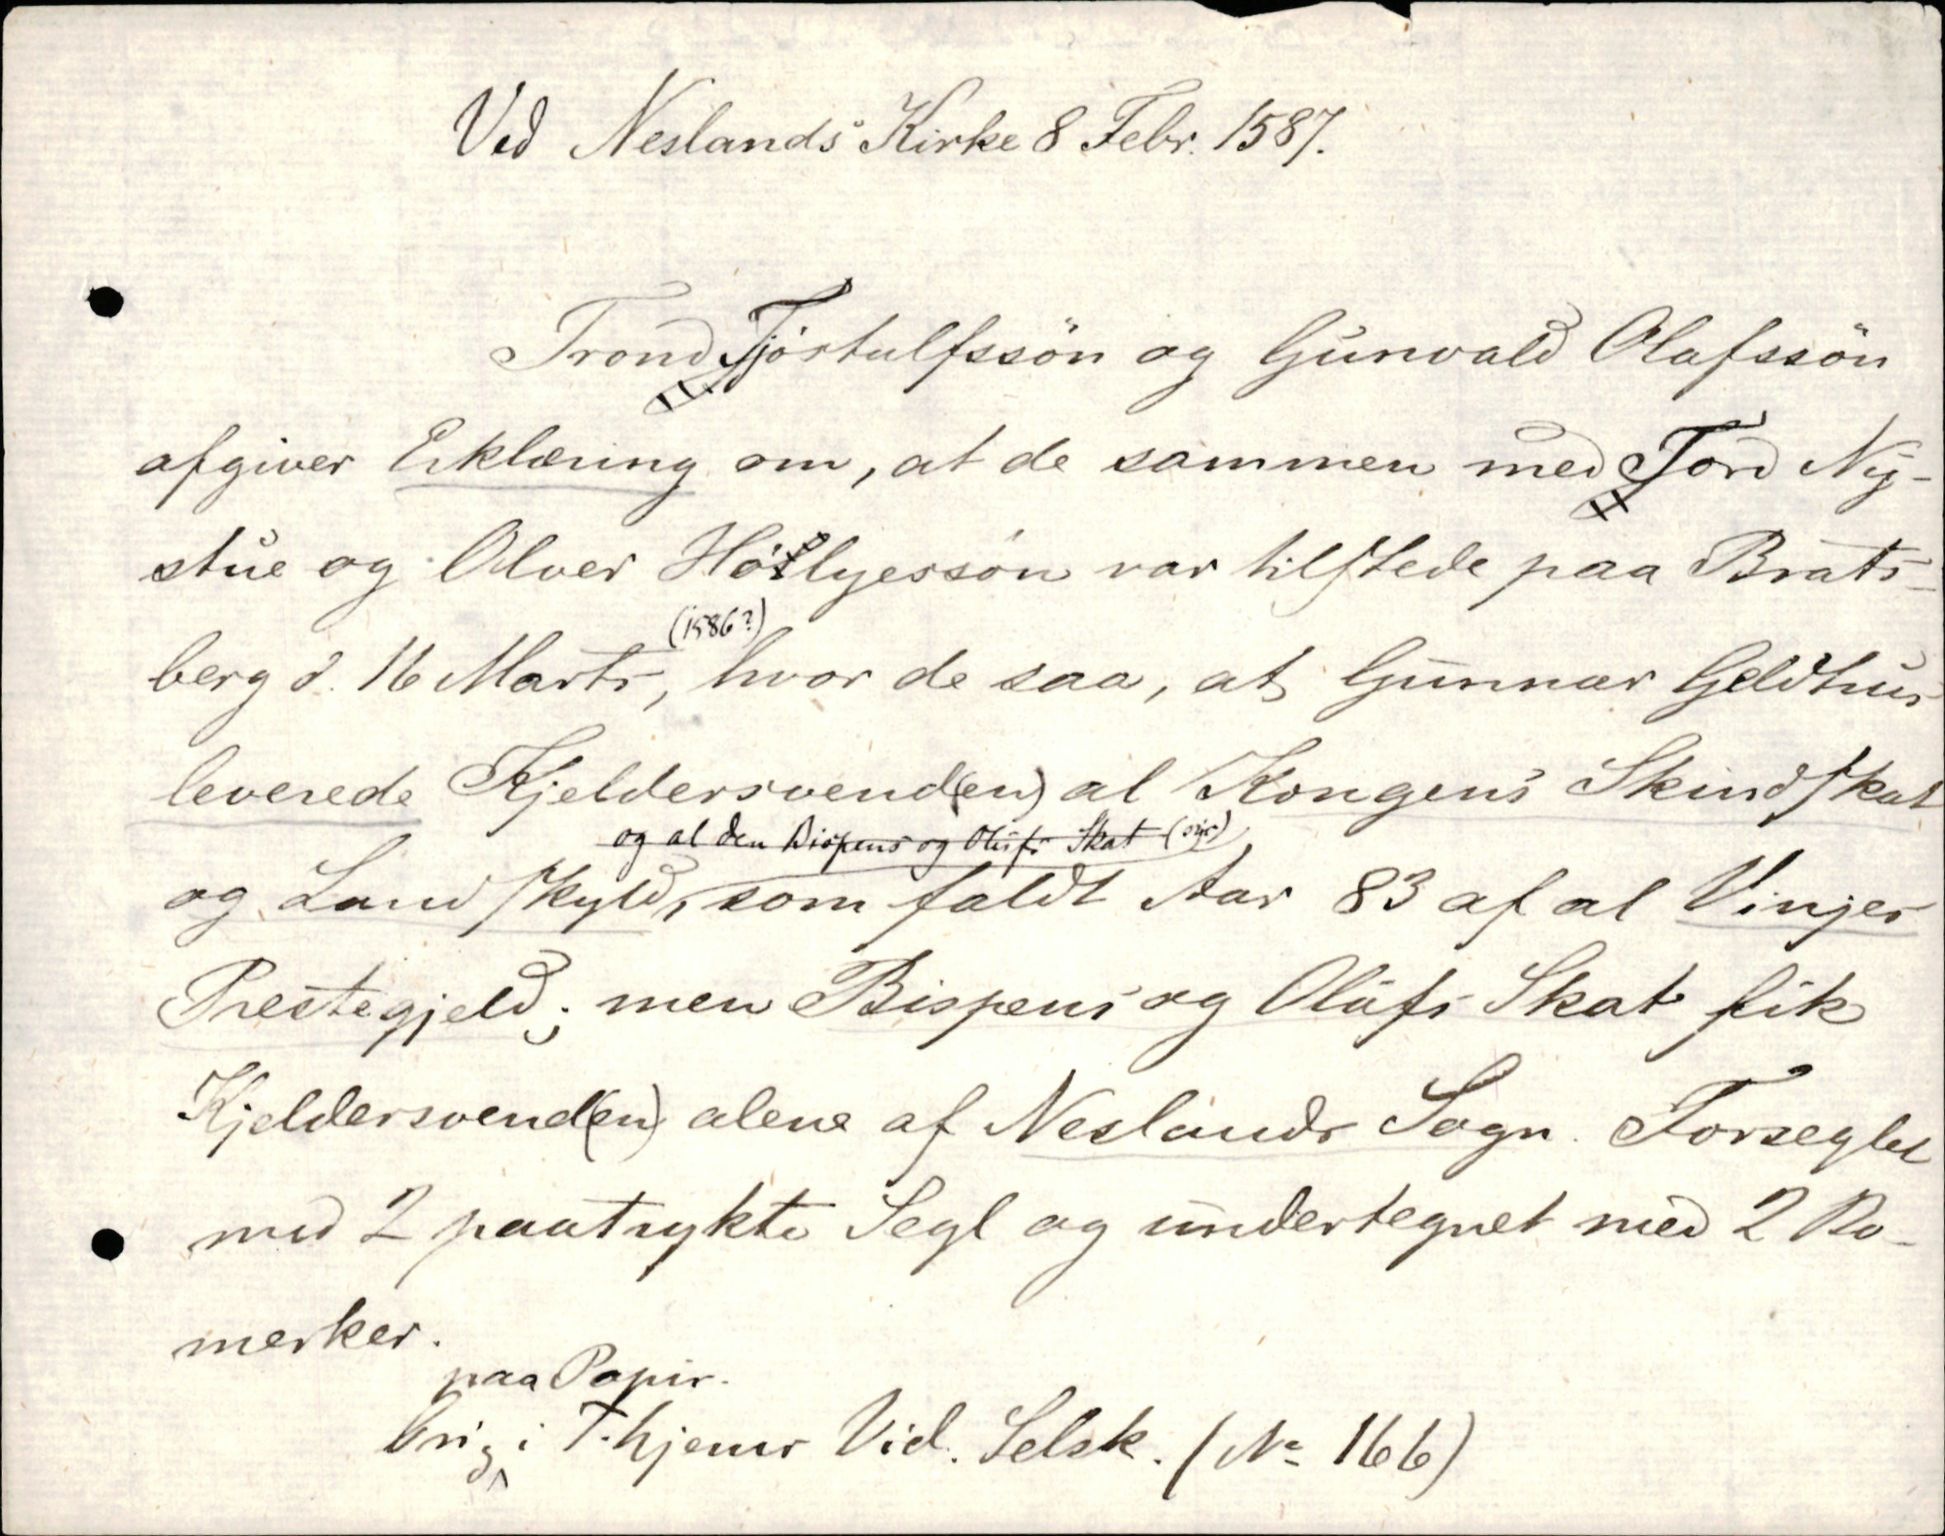 Ved Neslands Kirke 8 Febr. 1587.
Trond Tjöstulfssön og Gunvald Olafssön
afgiver Erklæring om, at de sammen med Tord Ny-
stue og Olver Höllyessön var tilstede paa Brats-
(1586?)
berg d. 16 Marts, hvor de saa, at Gunnar Geldhus
leverede Kjeldersvend(en) al Kongens Skindskat
og al den Bispens og Olufs Skat (sic)
og Landskyld, som faldt Aar 83 af al Vinjes
Prestegjeld; men Bispens og Olufs Skat fik
Kjeldersvend(en) alene af Neslands Sogn. Forseglet
med 2 paatrykte Segl og undertegnet med 2 Bo-
merker.
paa Papir.
Orig. i T.hjems Vid. Selsk. (No 166)